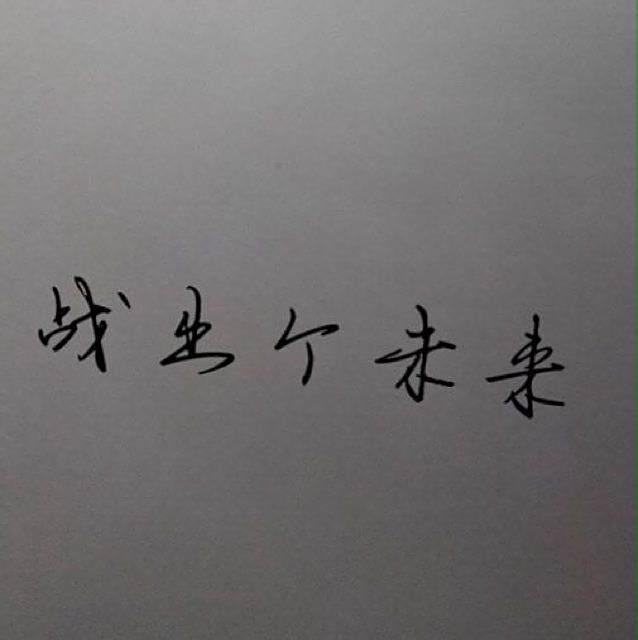 战出个未来